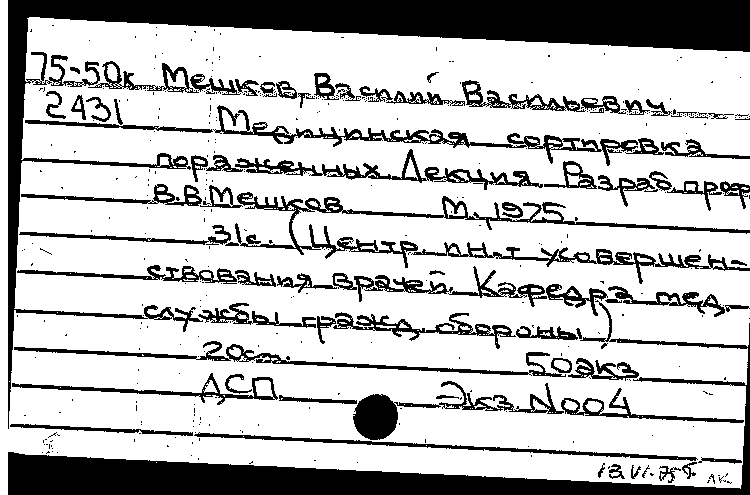 75-50к Мешков, Василий Васильевич.
2431 Медицинская сортировка
пораженных. Лекция. Разраб. проф
В.В. Мешков. М., 1975.
31с. (Центр. ин-т усовершен-
ствования врачей. Кафедра мед.
службы гражд. обороны)
20см. 50экз
ДСП. Экз. N004
13.VI.75г.